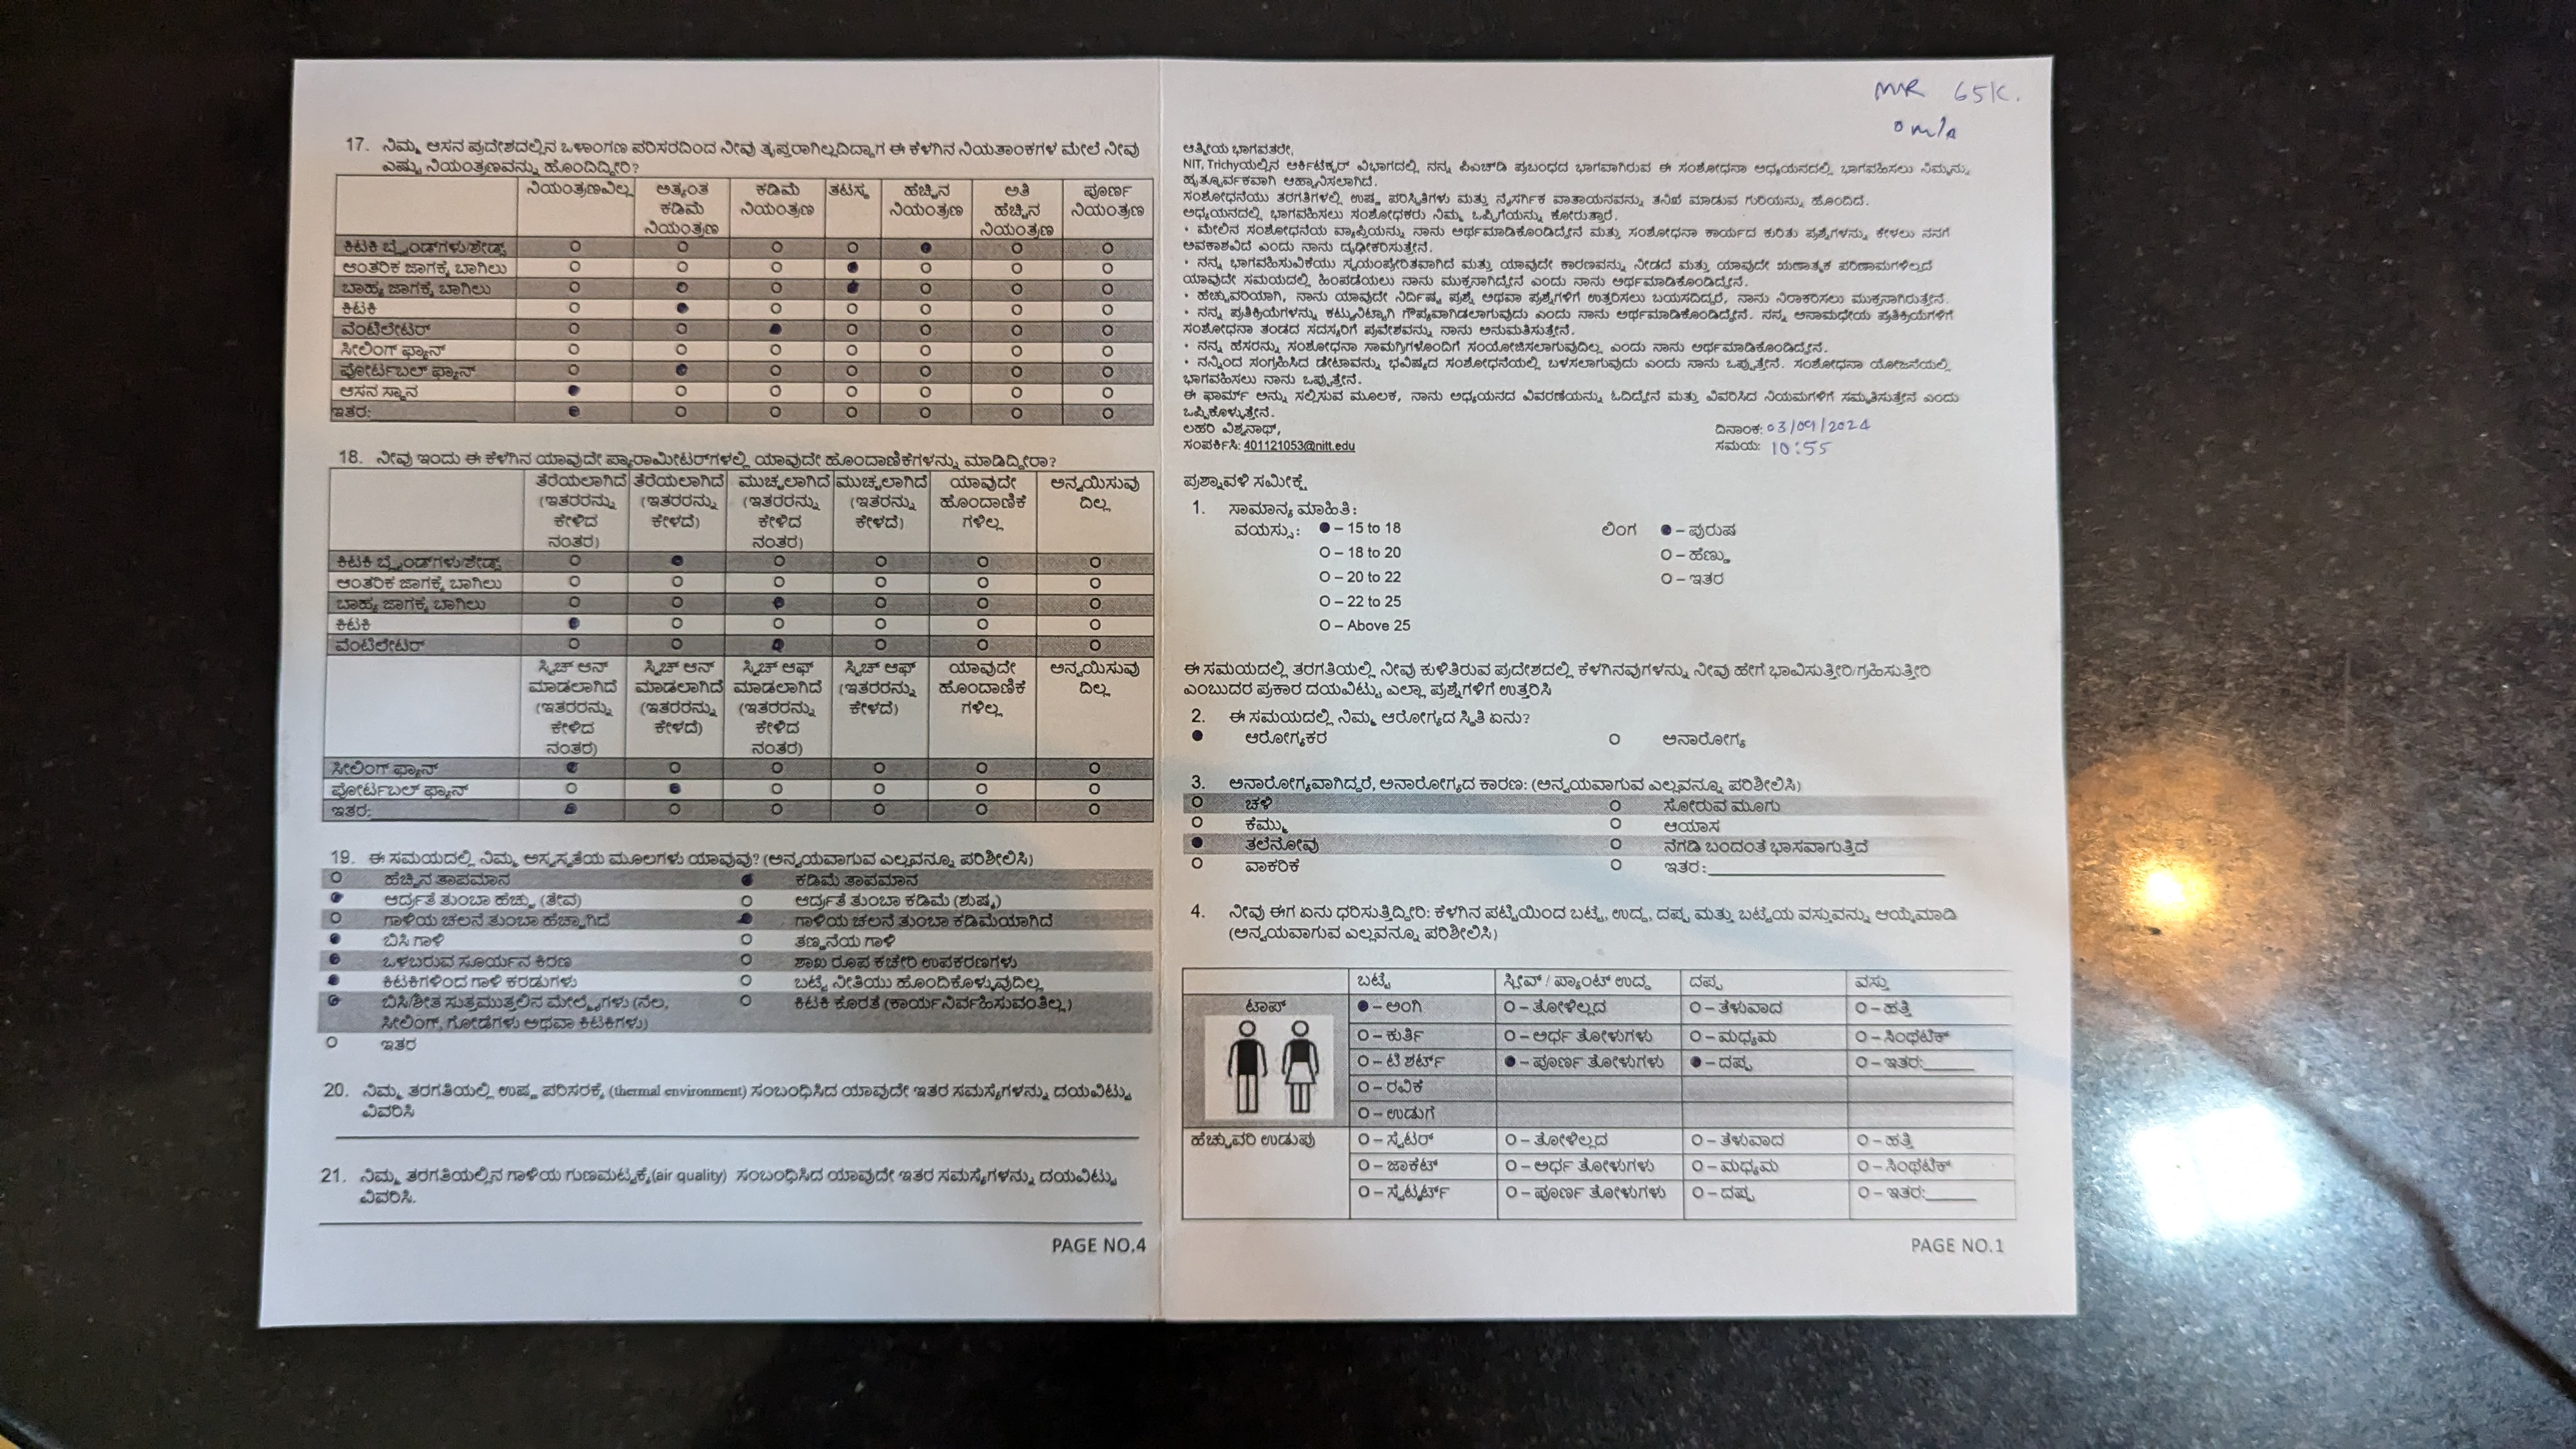 17. ನಿಮ್ಮ ಆಸನ ಪ್ರದೇಶದಲ್ಲಿನ ಒಳಾಂಗಣ ಪರಿಸರದಿಂದ ನೀವು ತೃಪ್ತರಾಗಿಲ್ಲದಿದ್ದಾಗ ಈ ಕೆಳಗಿನ ನಿಯತಾಂಕಗಳ ಮೇಲೆ ನೀವು
ಎಷ್ಟು ನಿಯಂತ್ರಣವನ್ನು ಹೊಂದಿದ್ದೀರಿ?
ನಿಯಂತ್ರಣವಿಲ್ಲ ಅತ್ಯಂತ ಕಡಿಮೆ ನಿಯಂತ್ರಣ ಕಡಿಮೆ ನಿಯಂತ್ರಣ ತಟಸ್ಥ ಹೆಚ್ಚಿನ ನಿಯಂತ್ರಣ ಅತಿ ಹೆಚ್ಚಿನ ನಿಯಂತ್ರಣ ಪೂರ್ಣ ನಿಯಂತ್ರಣ
ಕಿಟಕಿ ಬ್ಲೈಂಡ್‌ಗಳು/ಶೇಡ್ಸ್
ಆಂತರಿಕ ಜಾಗಕ್ಕೆ ಬಾಗಿಲು
ಬಾಹ್ಯ ಜಾಗಕ್ಕೆ ಬಾಗಿಲು
ಕಿಟಕಿ
ವೆಂಟಿಲೇಟರ್
ಸೀಲಿಂಗ್ ಫ್ಯಾನ್
ಪೋರ್ಟಬಲ್ ಫ್ಯಾನ್
ಆಸನ ಸ್ಥಾನ
ಇತರ:
18. ನೀವು ಇಂದು ಈ ಕೆಳಗಿನ ಯಾವುದೇ ಪ್ಯಾರಾಮೀಟರ್‌ಗಳಲ್ಲಿ ಯಾವುದೇ ಹೊಂದಾಣಿಕೆಗಳನ್ನು ಮಾಡಿದ್ದೀರಾ?
ತೆರೆಯಲಾಗಿದೆ (ಇತರರನ್ನು ಕೇಳಿದ ನಂತರ) ತೆರೆಯಲಾಗಿದೆ (ಇತರರನ್ನು ಕೇಳದೆ) ಮುಚ್ಚಲಾಗಿದೆ (ಇತರರನ್ನು ಕೇಳಿದ ನಂತರ) ಮುಚ್ಚಲಾಗಿದೆ (ಇತರನ್ನು ಕೇಳದೆ) ಯಾವುದೇ ಹೊಂದಾಣಿಕೆ ಗಳಿಲ್ಲ ಅನ್ವಯಿಸುವು ದಿಲ್ಲ
ಕಿಟಕಿ ಬ್ಲೈಂಡ್‌ಗಳು/ಶೇಡ್ಸ್
ಆಂತರಿಕ ಜಾಗಕ್ಕೆ ಬಾಗಿಲು
ಬಾಹ್ಯ ಜಾಗಕ್ಕೆ ಬಾಗಿಲು
ಕಿಟಕಿ
ವೆಂಟಿಲೇಟರ್
ಸ್ವಿಚ್ ಆನ್ ಮಾಡಲಾಗಿದೆ (ಇತರರನ್ನು ಕೇಳಿದ ನಂತರ) ಸ್ವಿಚ್ ಆನ್ ಮಾಡಲಾಗಿದೆ (ಇತರರನ್ನು ಕೇಳದೆ) ಸ್ವಿಚ್ ಆಫ್ ಮಾಡಲಾಗಿದೆ (ಇತರರನ್ನು ಕೇಳಿದ ನಂತರ) ಸ್ವಿಚ್ ಆಫ್ (ಇತರರನ್ನು ಕೇಳದೆ) ಯಾವುದೇ ಹೊಂದಾಣಿಕೆ ಗಳಿಲ್ಲ ಅನ್ವಯಿಸುವು ದಿಲ್ಲ
ಸೀಲಿಂಗ್ ಫ್ಯಾನ್
ಪೋರ್ಟಬಲ್ ಫ್ಯಾನ್
ಇತರ:
19. ಈ ಸಮಯದಲ್ಲಿ ನಿಮ್ಮ ಅಸ್ವಸ್ಥತೆಯ ಮೂಲಗಳು ಯಾವುವು? (ಅನ್ವಯವಾಗುವ ಎಲ್ಲವನ್ನೂ ಪರಿಶೀಲಿಸಿ)
ಹೆಚ್ಚಿನ ತಾಪಮಾನ ಕಡಿಮೆ ತಾಪಮಾನ
ಆರ್ದ್ರತೆ ತುಂಬಾ ಹೆಚ್ಚು (ತೇವ) ಆರ್ದ್ರತೆ ತುಂಬಾ ಕಡಿಮೆ (ಶುಷ್ಕ)
ಗಾಳಿಯ ಚಲನೆ ತುಂಬಾ ಹೆಚ್ಚಾಗಿದೆ ಗಾಳಿಯ ಚಲನೆ ತುಂಬಾ ಕಡಿಮೆಯಾಗಿದೆ
ಬಿಸಿ ಗಾಳಿ ತಣ್ಣನೆಯ ಗಾಳಿ
ಒಳಬರುವ ಸೂರ್ಯನ ಕಿರಣ ಶಾಖ ರೂಪ ಕಚೇರಿ ಉಪಕರಣಗಳು
ಕಿಟಕಿಗಳಿಂದ ಗಾಳಿ ಕರಡುಗಳು ಬಟ್ಟೆ ನೀತಿಯು ಹೊಂದಿಕೊಳ್ಳುವುದಿಲ್ಲ
ಬಿಸಿ/ಶೀತ ಸುತ್ತಮುತ್ತಲಿನ ಮೇಲ್ಮೈಗಳು (ನೆಲ, ಕಿಟಕಿ ಕೊರತೆ (ಕಾರ್ಯನಿರ್ವಹಿಸುವಂತಿಲ್ಲ)
ಸೀಲಿಂಗ್, ಗೋಡೆಗಳು ಅಥವಾ ಕಿಟಕಿಗಳು)
ಇತರ
20. ನಿಮ್ಮ ತರಗತಿಯಲ್ಲಿ ಉಷ್ಣ ಪರಿಸರಕ್ಕೆ (thermal environment) ಸಂಬಂಧಿಸಿದ ಯಾವುದೇ ಇತರ ಸಮಸ್ಯೆಗಳನ್ನು ದಯವಿಟ್ಟು
ವಿವರಿಸಿ
21. ನಿಮ್ಮ ತರಗತಿಯಲ್ಲಿನ ಗಾಳಿಯ ಗುಣಮಟ್ಟಕ್ಕೆ(air quality) ಸಂಬಂಧಿಸಿದ ಯಾವುದೇ ಇತರ ಸಮಸ್ಯೆಗಳನ್ನು ದಯವಿಟ್ಟು
ವಿವರಿಸಿ.
PAGE NO.4
MR 65K.
ಆತ್ಮೀಯ ಭಾಗವತರೇ,
NIT, Trichyಯಲ್ಲಿನ ಆರ್ಕಿಟೆಕ್ಚರ್ ವಿಭಾಗದಲ್ಲಿ ನನ್ನ ಪಿಎಚ್‌ಡಿ ಪ್ರಬಂಧದ ಭಾಗವಾಗಿರುವ ಈ ಸಂಶೋಧನಾ ಅಧ್ಯಯನದಲ್ಲಿ ಭಾಗವಹಿಸಲು ನಿಮ್ಮನ್ನು
ಹೃತ್ಪೂರ್ವಕವಾಗಿ ಆಹ್ವಾನಿಸಲಾಗಿದೆ.
ಸಂಶೋಧನೆಯು ತರಗತಿಗಳಲ್ಲಿ ಉಷ್ಣ ಪರಿಸ್ಥಿತಿಗಳು ಮತ್ತು ನೈಸರ್ಗಿಕ ವಾತಾಯನವನ್ನು ತನಿಖೆ ಮಾಡುವ ಗುರಿಯನ್ನು ಹೊಂದಿದೆ.
ಅಧ್ಯಯನದಲ್ಲಿ ಭಾಗವಹಿಸಲು ಸಂಶೋಧಕರು ನಿಮ್ಮ ಒಪ್ಪಿಗೆಯನ್ನು ಕೋರುತ್ತಾರೆ.
• ಮೇಲಿನ ಸಂಶೋಧನೆಯ ವ್ಯಾಪ್ತಿಯನ್ನು ನಾನು ಅರ್ಥಮಾಡಿಕೊಂಡಿದ್ದೇನೆ ಮತ್ತು ಸಂಶೋಧನಾ ಕಾರ್ಯದ ಕುರಿತು ಪ್ರಶ್ನೆಗಳನ್ನು ಕೇಳಲು ನನಗೆ
ಅವಕಾಶವಿದೆ ಎಂದು ನಾನು ದೃಢೀಕರಿಸುತ್ತೇನೆ.
• ನನ್ನ ಭಾಗವಹಿಸುವಿಕೆಯು ಸ್ವಯಂಪ್ರೇರಿತವಾಗಿದೆ ಮತ್ತು ಯಾವುದೇ ಕಾರಣವನ್ನು ನೀಡದೆ ಮತ್ತು ಯಾವುದೇ ಋಣಾತ್ಮಕ ಪರಿಣಾಮಗಳಿಲ್ಲದೆ
ಯಾವುದೇ ಸಮಯದಲ್ಲಿ ಹಿಂಪಡೆಯಲು ನಾನು ಮುಕ್ತನಾಗಿದ್ದೇನೆ ಎಂದು ನಾನು ಅರ್ಥಮಾಡಿಕೊಂಡಿದ್ದೇನೆ.
• ಹೆಚ್ಚುವರಿಯಾಗಿ, ನಾನು ಯಾವುದೇ ನಿರ್ದಿಷ್ಟ ಪ್ರಶ್ನೆ ಅಥವಾ ಪ್ರಶ್ನೆಗಳಿಗೆ ಉತ್ತರಿಸಲು ಬಯಸದಿದ್ದರೆ, ನಾನು ನಿರಾಕರಿಸಲು ಮುಕ್ತನಾಗಿರುತ್ತೇನೆ.
• ನನ್ನ ಪ್ರತಿಕ್ರಿಯೆಗಳನ್ನು ಕಟ್ಟುನಿಟ್ಟಾಗಿ ಗೌಪ್ಯವಾಗಿಡಲಾಗುವುದು ಎಂದು ನಾನು ಅರ್ಥಮಾಡಿಕೊಂಡಿದ್ದೇನೆ. ನನ್ನ ಅನಾಮಧೇಯ ಪ್ರತಿಕ್ರಿಯೆಗಳಿಗೆ
ಸಂಶೋಧನಾ ತಂಡದ ಸದಸ್ಯರಿಗೆ ಪ್ರವೇಶವನ್ನು ನಾನು ಅನುಮತಿಸುತ್ತೇನೆ.
• ನನ್ನ ಹೆಸರನ್ನು ಸಂಶೋಧನಾ ಸಾಮಗ್ರಿಗಳೊಂದಿಗೆ ಸಂಯೋಜಿಸಲಾಗುವುದಿಲ್ಲ ಎಂದು ನಾನು ಅರ್ಥಮಾಡಿಕೊಂಡಿದ್ದೇನೆ.
• ನನ್ನಿಂದ ಸಂಗ್ರಹಿಸಿದ ಡೇಟಾವನ್ನು ಭವಿಷ್ಯದ ಸಂಶೋಧನೆಯಲ್ಲಿ ಬಳಸಲಾಗುವುದು ಎಂದು ನಾನು ಒಪ್ಪುತ್ತೇನೆ. ಸಂಶೋಧನಾ ಯೋಜನೆಯಲ್ಲಿ
ಭಾಗವಹಿಸಲು ನಾನು ಒಪ್ಪುತ್ತೇನೆ.
ಈ ಫಾರ್ಮ್ ಅನ್ನು ಸಲ್ಲಿಸುವ ಮೂಲಕ, ನಾನು ಅಧ್ಯಯನದ ವಿವರಣೆಯನ್ನು ಓದಿದ್ದೇನೆ ಮತ್ತು ವಿವರಿಸಿದ ನಿಯಮಗಳಿಗೆ ಸಮ್ಮತಿಸುತ್ತೇನೆ ಎಂದು
ಒಪ್ಪಿಕೊಳ್ಳುತ್ತೇನೆ.
ಲಹರಿ ವಿಶ್ವನಾಥ್, ದಿನಾಂಕ: 03/09/2024
ಸಂಪರ್ಕಿಸಿ: 401121053@nitt.edu ಸಮಯ: 10:55
ಪ್ರಶ್ನಾವಳಿ ಸಮೀಕ್ಷೆ
1. ಸಾಮಾನ್ಯ ಮಾಹಿತಿ:
ವಯಸ್ಸು: – 15 to 18 ಲಿಂಗ – ಪುರುಷ
– 18 to 20 – ಹೆಣ್ಣು
– 20 to 22 – ಇತರ
– 22 to 25
– Above 25
ಈ ಸಮಯದಲ್ಲಿ ತರಗತಿಯಲ್ಲಿ ನೀವು ಕುಳಿತಿರುವ ಪ್ರದೇಶದಲ್ಲಿ ಕೆಳಗಿನವುಗಳನ್ನು ನೀವು ಹೇಗೆ ಭಾವಿಸುತ್ತೀರಿ/ಗ್ರಹಿಸುತ್ತೀರಿ
ಎಂಬುದರ ಪ್ರಕಾರ ದಯವಿಟ್ಟು ಎಲ್ಲಾ ಪ್ರಶ್ನೆಗಳಿಗೆ ಉತ್ತರಿಸಿ
2. ಈ ಸಮಯದಲ್ಲಿ ನಿಮ್ಮ ಆರೋಗ್ಯದ ಸ್ಥಿತಿ ಏನು?
ಆರೋಗ್ಯಕರ ಅನಾರೋಗ್ಯ
3. ಅನಾರೋಗ್ಯವಾಗಿದ್ದರೆ, ಅನಾರೋಗ್ಯದ ಕಾರಣ: (ಅನ್ವಯವಾಗುವ ಎಲ್ಲವನ್ನೂ ಪರಿಶೀಲಿಸಿ)
ಚಳಿ ಸೋರುವ ಮೂಗು
ಕೆಮ್ಮು ಆಯಾಸ
ತಲೆನೋವು ನೆಗಡಿ ಬಂದಂತೆ ಭಾಸವಾಗುತ್ತಿದೆ
ವಾಕರಿಕೆ ಇತರ:
4. ನೀವು ಈಗ ಏನು ಧರಿಸುತ್ತಿದ್ದೀರಿ: ಕೆಳಗಿನ ಪಟ್ಟಿಯಿಂದ ಬಟ್ಟೆ, ಉದ್ದ, ದಪ್ಪ ಮತ್ತು ಬಟ್ಟೆಯ ವಸ್ತುವನ್ನು ಆಯ್ಕೆಮಾಡಿ
(ಅನ್ವಯವಾಗುವ ಎಲ್ಲವನ್ನೂ ಪರಿಶೀಲಿಸಿ)
ಬಟ್ಟೆ ಸ್ಲೀವ್ / ಪ್ಯಾಂಟ್ ಉದ್ದ ದಪ್ಪ ವಸ್ತು
ಟಾಪ್ – ಅಂಗಿ – ತೋಳಿಲ್ಲದ – ತೆಳುವಾದ – ಹತ್ತಿ
– ಕುರ್ತಿ – ಅರ್ಧ ತೋಳುಗಳು – ಮಧ್ಯಮ – ಸಿಂಥಟಿಕ್
– ಟಿ ಶರ್ಟ್ – ಪೂರ್ಣ ತೋಳುಗಳು – ದಪ್ಪ – ಇತರ:
– ರವಿಕೆ
– ಉಡುಗೆ
ಹೆಚ್ಚುವರಿ ಉಡುಪು – ಸ್ವೆಟರ್ – ತೋಳಿಲ್ಲದ – ತೆಳುವಾದ – ಹತ್ತಿ
– ಜಾಕೆಟ್ – ಅರ್ಧ ತೋಳುಗಳು – ಮಧ್ಯಮ – ಸಿಂಥಟಿಕ್
– ಸ್ವೆಟ್ಶರ್ಟ್ – ಪೂರ್ಣ ತೋಳುಗಳು – ದಪ್ಪ – ಇತರ:
PAGE NO.1